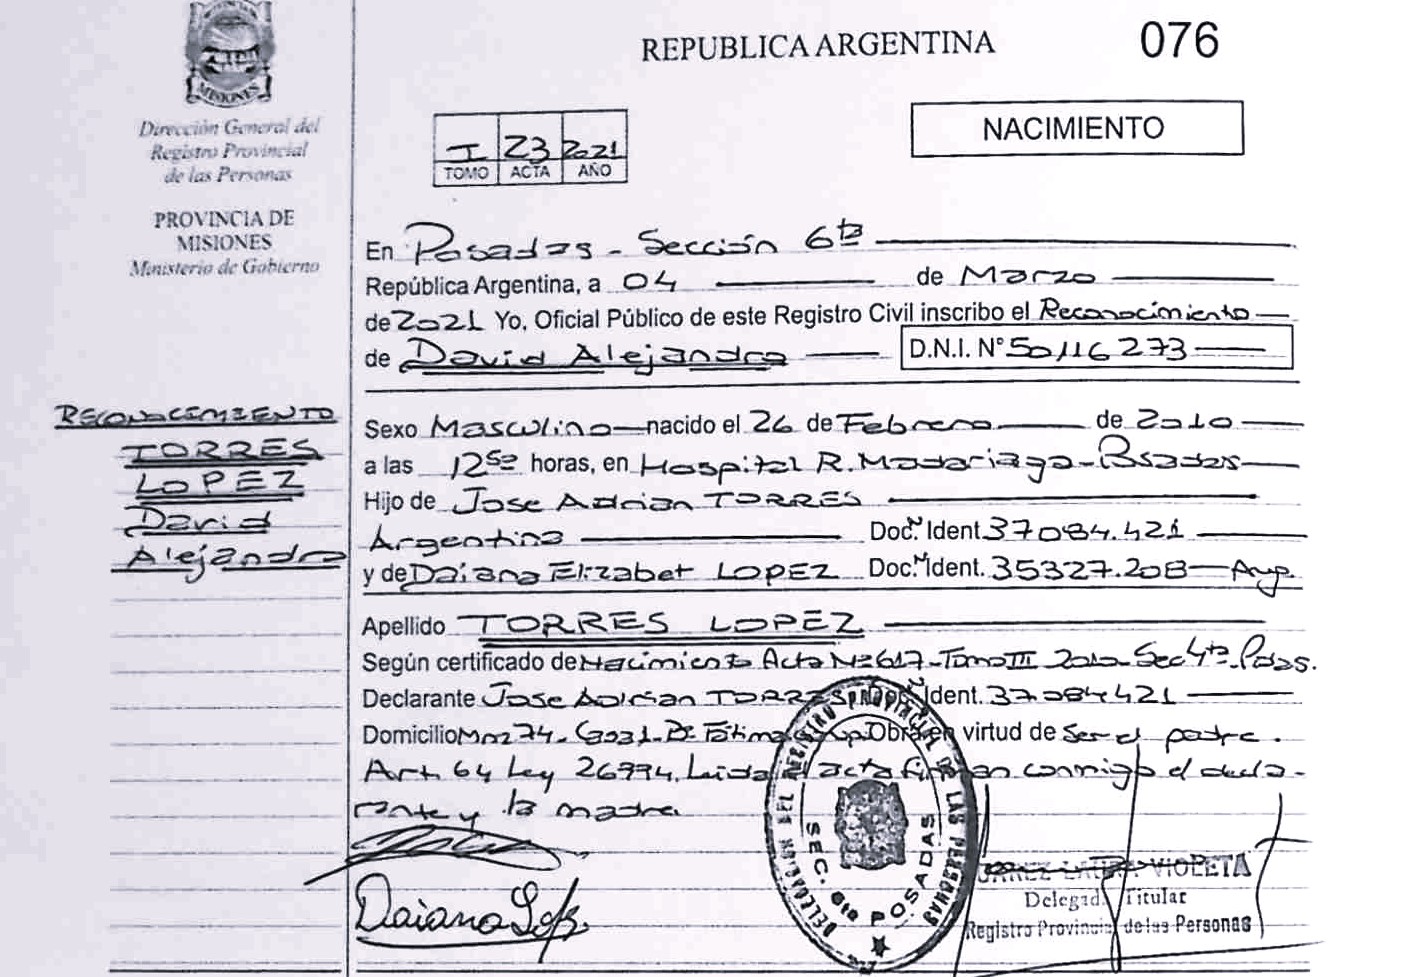 MISIONES
Dirección General del
Registro Provincial
de las Personas
PROVINCIA DE
MISIONES
Ministerio de Gobierno
REPUBLICA ARGENTINA
076
I 23 2021
TOMO ACTA AÑO
NACIMIENTO
En Posadas - Sección 6ta
República Argentina, a 04 de Marzo
de 2021 Yo, Oficial Público de este Registro Civil inscribo el Reconocimiento
de David Alejandro D.N.I. N° 50116273
RECONOCIMIENTO
TORRES
LOPEZ
David
Alejandro
Sexo Masculino nacido el 26 de Febrero de 2010
a las 12 horas, en Hospital R. Madariaga - Posadas
Hijo de Jose Adrian TORRES
Argentina Doc. Ident. 37084.421
y de Daiana Elizabet LOPEZ Doc. Ident. 35327.208 - Arg.
Apellido TORRES LOPEZ
Según certificado de Nacimiento Acta Nº 617 - Tomo III 2010 - Sec 4ta - Pdas.
Declarante Jose Adrian TORRES Ident. 37084421
Domicilio Mz 74 - Fátima en virtud de ser el padre.
Art. 64 Ley 26994. Leida acta firman conmigo el decla-
rante y la madre
Daiana
DELEGACION DEL REGISTRO PROVINCIAL DE LAS PERSONAS
SEC. 6ta POSADAS
VIOLETA
Titular
Registro Provincial de las Personas